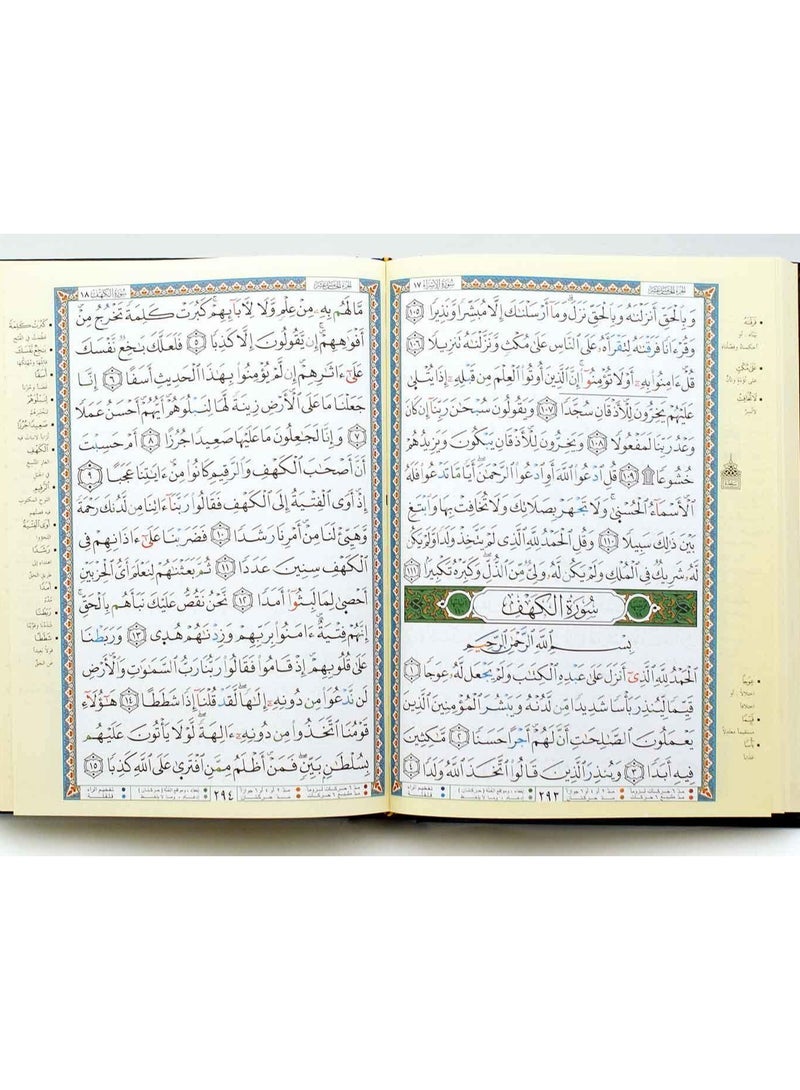 سُورَةُ الإِسْرَاءِ ١٧
وَبِالْحَقِّ أَنزَلْنَاهُ وَبِالْحَقِّ نَزَلَ وَمَا أَرْسَلْنَاكَ إِلَّا مُبَشِّرًا وَنَذِيرًا ١٠٥
وَقُرْءَانًا فَرَقْنَاهُ لِتَقْرَأَهُ عَلَى النَّاسِ عَلَى مُكْثٍ وَنَزَّلْنَاهُ تَنزِيلًا ١٠٦
قُلْ ءَامِنُوا بِهِ أَوْ لَا تُؤْمِنُوا إِنَّ الَّذِينَ أُوتُوا الْعِلْمَ مِن قَبْلِهِ إِذَا يُتْلَى
عَلَيْهِمْ يَخِرُّونَ لِلْأَذْقَانِ سُجَّدًا ١٠٧ وَيَقُولُونَ سُبْحَانَ رَبِّنَا إِن كَانَ
وَعْدُ رَبِّنَا لَمَفْعُولًا ١٠٨ وَيَخِرُّونَ لِلْأَذْقَانِ يَبْكُونَ وَيَزِيدُهُمْ
خُشُوعًا ۩ ١٠٩ قُلِ ادْعُوا اللَّهَ أَوِ ادْعُوا الرَّحْمَٰنَ أَيًّا مَّا تَدْعُوا فَلَهُ
الْأَسْمَاءُ الْحُسْنَى وَلَا تَجْهَرْ بِصَلَاتِكَ وَلَا تُخَافِتْ بِهَا وَابْتَغِ
بَيْنَ ذَٰلِكَ سَبِيلًا ١١٠ وَقُلِ الْحَمْدُ لِلَّهِ الَّذِي لَمْ يَتَّخِذْ وَلَدًا وَلَمْ يَكُن
لَّهُ شَرِيكٌ فِي الْمُلْكِ وَلَمْ يَكُن لَّهُ وَلِيٌّ مِّنَ الذُّلِّ وَكَبِّرْهُ تَكْبِيرًا ١١١
سُورَةُ الْكَهْفِ
بِسْمِ اللَّهِ الرَّحْمَٰنِ الرَّحِيمِ
الْحَمْدُ لِلَّهِ الَّذِي أَنزَلَ عَلَى عَبْدِهِ الْكِتَابَ وَلَمْ يَجْعَل لَّهُ عِوَجًا ١
قَيِّمًا لِّيُنذِرَ بَأْسًا شَدِيدًا مِّن لَّدُنْهُ وَيُبَشِّرَ الْمُؤْمِنِينَ الَّذِينَ
يَعْمَلُونَ الصَّالِحَاتِ أَنَّ لَهُمْ أَجْرًا حَسَنًا ٢ مَّاكِثِينَ
فِيهِ أَبَدًا ٣ وَيُنذِرَ الَّذِينَ قَالُوا اتَّخَذَ اللَّهُ وَلَدًا ٤
٢٩٣
سُورَةُ الْكَهْفِ ١٨
مَّا لَهُم بِهِ مِنْ عِلْمٍ وَلَا لِآبَائِهِمْ كَبُرَتْ كَلِمَةً تَخْرُجُ مِنْ
أَفْوَاهِهِمْ إِن يَقُولُونَ إِلَّا كَذِبًا ٥ فَلَعَلَّكَ بَاخِعٌ نَّفْسَكَ
عَلَى ءَاثَارِهِمْ إِن لَّمْ يُؤْمِنُوا بِهَٰذَا الْحَدِيثِ أَسَفًا ٦ إِنَّا
جَعَلْنَا مَا عَلَى الْأَرْضِ زِينَةً لَّهَا لِنَبْلُوَهُمْ أَيُّهُمْ أَحْسَنُ عَمَلًا
٧ وَإِنَّا لَجَاعِلُونَ مَا عَلَيْهَا صَعِيدًا جُرُزًا ٨ أَمْ حَسِبْتَ
أَنَّ أَصْحَابَ الْكَهْفِ وَالرَّقِيمِ كَانُوا مِنْ ءَايَاتِنَا عَجَبًا ٩
إِذْ أَوَى الْفِتْيَةُ إِلَى الْكَهْفِ فَقَالُوا رَبَّنَا ءَاتِنَا مِن لَّدُنكَ رَحْمَةً
وَهَيِّئْ لَنَا مِنْ أَمْرِنَا رَشَدًا ١٠ فَضَرَبْنَا عَلَى ءَاذَانِهِمْ فِي
الْكَهْفِ سِنِينَ عَدَدًا ١١ ثُمَّ بَعَثْنَاهُمْ لِنَعْلَمَ أَيُّ الْحِزْبَيْنِ
أَحْصَى لِمَا لَبِثُوا أَمَدًا ١٢ نَّحْنُ نَقُصُّ عَلَيْكَ نَبَأَهُم بِالْحَقِّ
إِنَّهُمْ فِتْيَةٌ ءَامَنُوا بِرَبِّهِمْ وَزِدْنَاهُمْ هُدًى ١٣ وَرَبَطْنَا
عَلَى قُلُوبِهِمْ إِذْ قَامُوا فَقَالُوا رَبُّنَا رَبُّ السَّمَاوَاتِ وَالْأَرْضِ
لَن نَّدْعُوَا مِن دُونِهِ إِلَٰهًا لَّقَدْ قُلْنَا إِذًا شَطَطًا ١٤ هَٰؤُلَاءِ
قَوْمُنَا اتَّخَذُوا مِن دُونِهِ ءَالِهَةً لَّوْلَا يَأْتُونَ عَلَيْهِم
بِسُلْطَانٍ بَيِّنٍ فَمَنْ أَظْلَمُ مِمَّنِ افْتَرَى عَلَى اللَّهِ كَذِبًا ١٥
٢٩٤